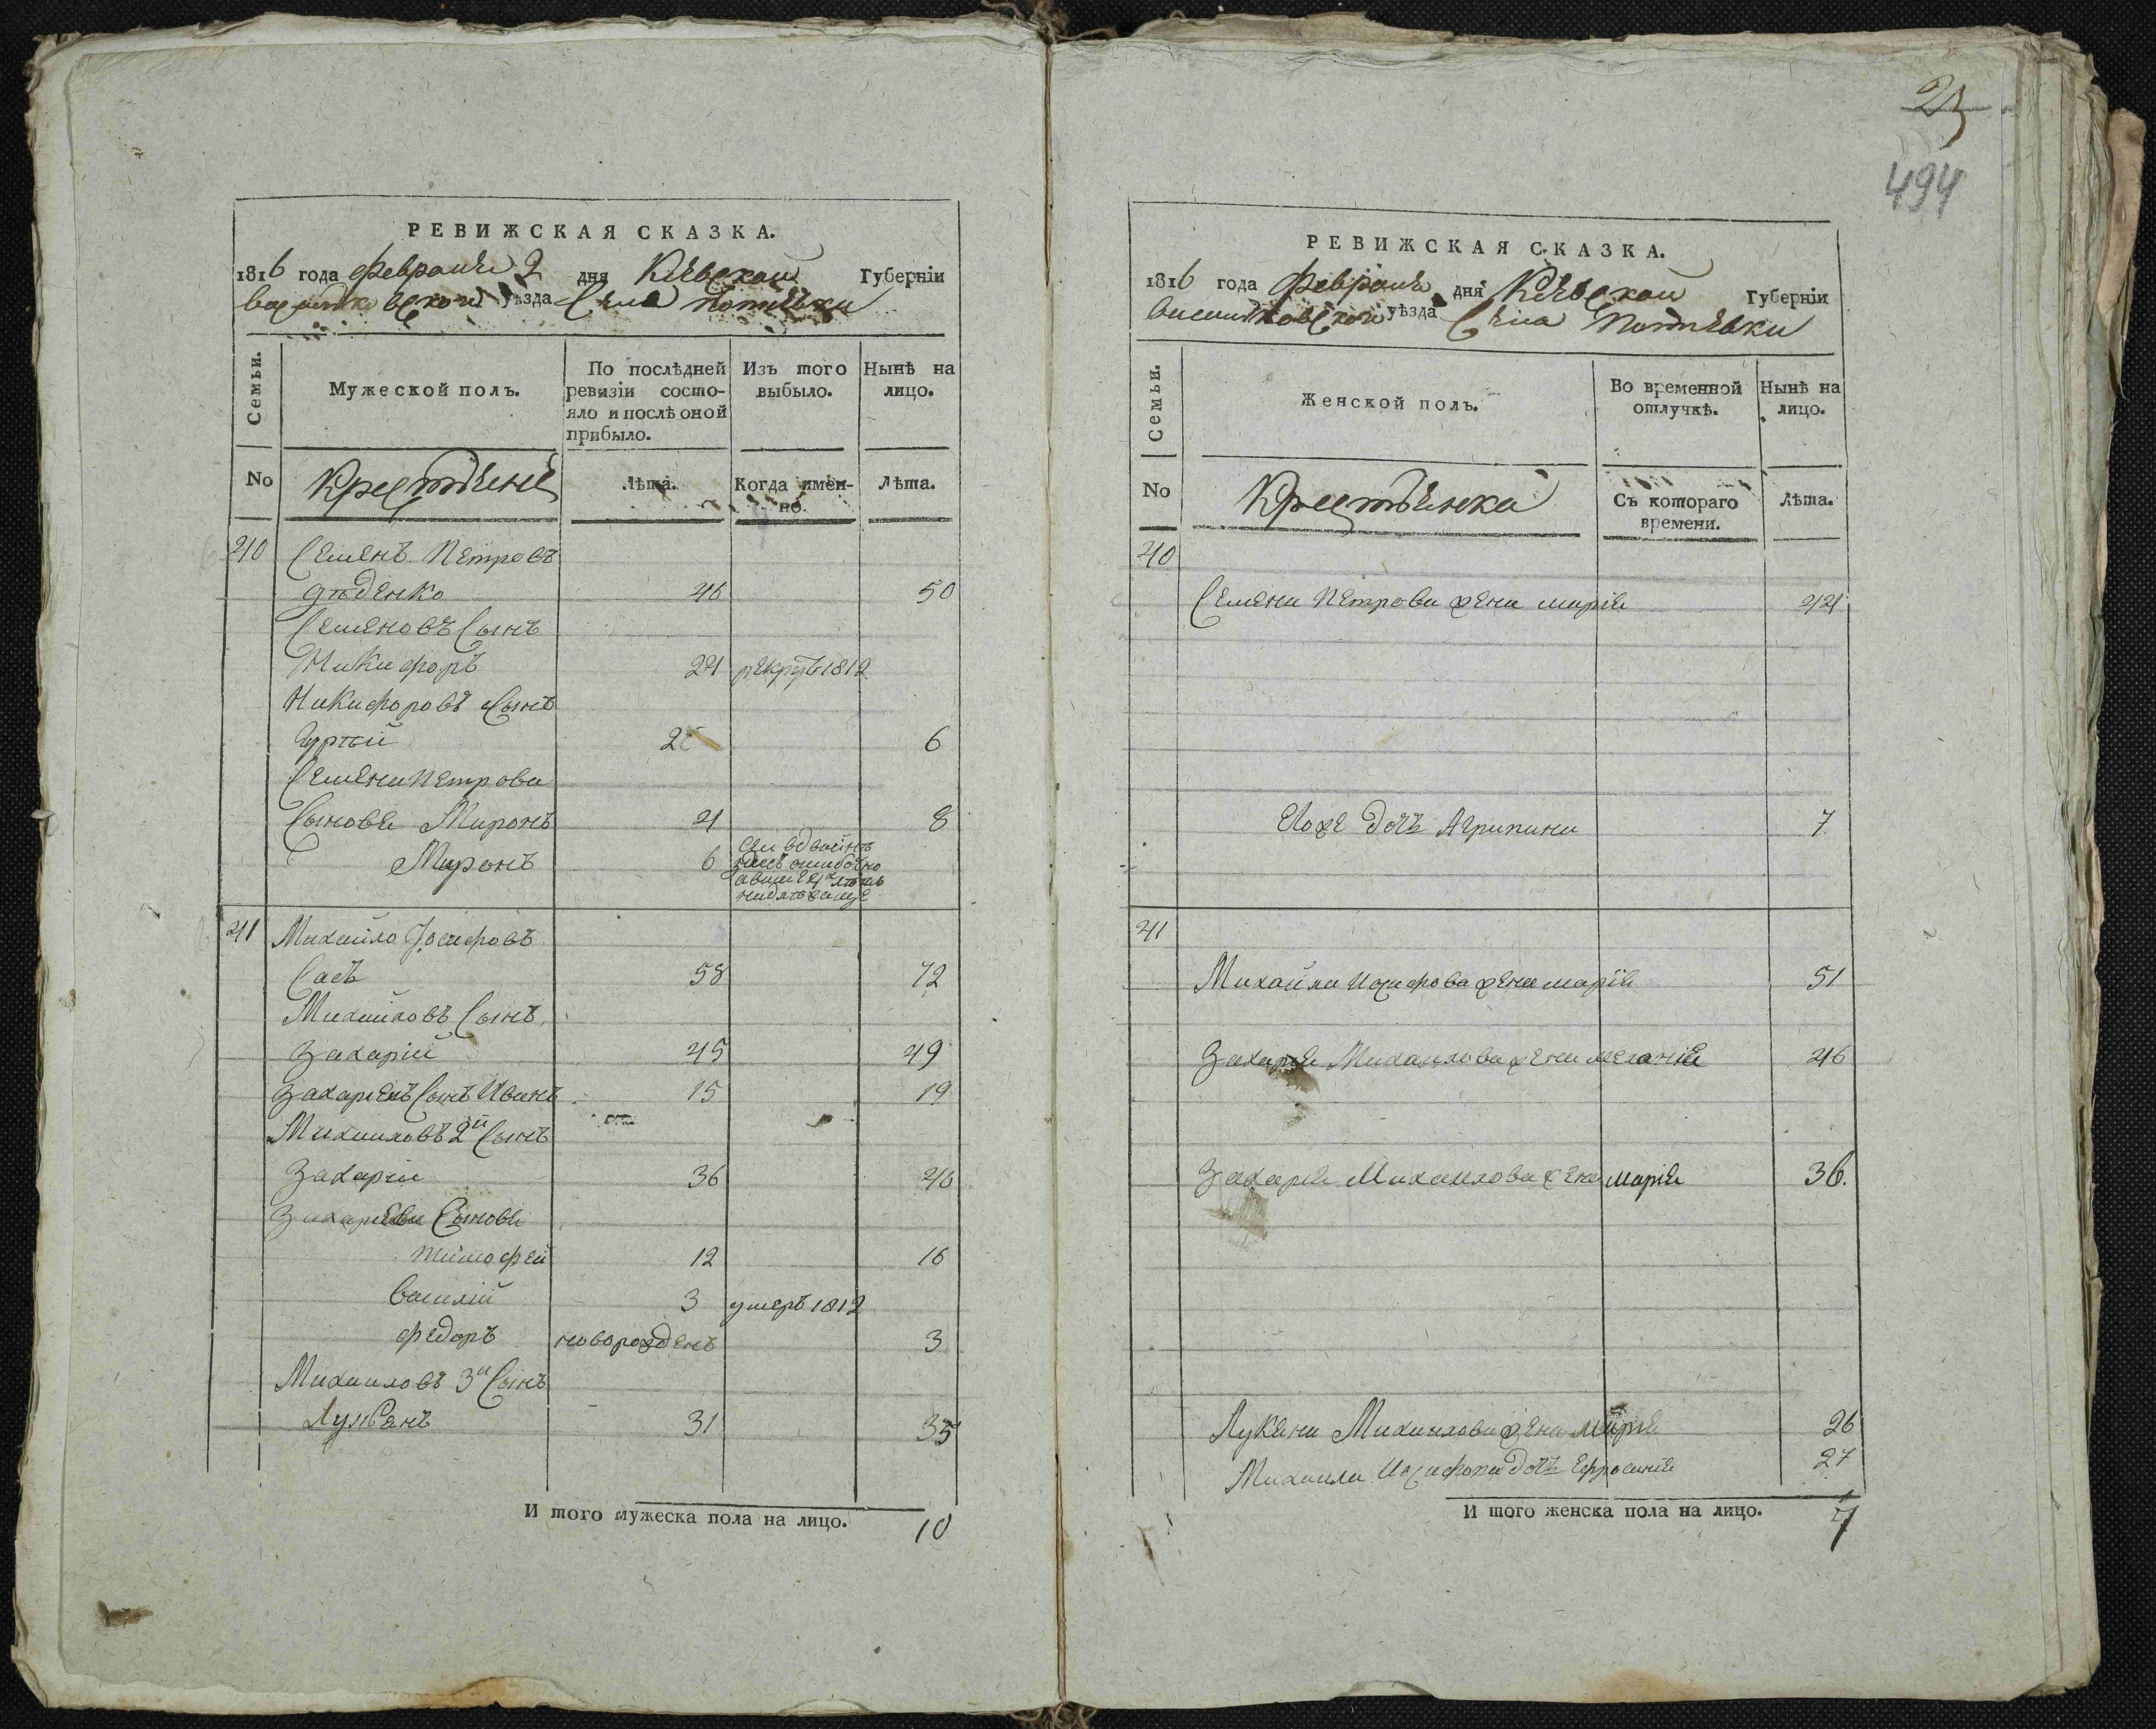 РЕВИЖСКАЯ СКАЗКА.
1816 года Февраля 2 дня Кіевской Губерніи
васильковской уѣзда Села Потіевки
Семьи.
Мужеской полъ.
По послѣдней ревизіи состояло и послѣ оной прибыло.
Изъ того выбыло.
Нынѣ на лицо.
No
Крестьяне
Лѣта.
Когда именно.
Лѣта.
40 Семенъ Петровъ
дѣденко 46 50
Семеновъ Сынъ
Никифоръ 24 рекрутъ 1812
Никифоровъ Сынъ
6
Семена Петрова
Сыновья Миронъ 4 8
Миронъ 6
41 Михайло Іосифовъ
Сасъ 58 72
Михайловъ Сынъ
Захарій 45 49
Захаріевъ Сынъ Иванъ 15 19
Михаиловъ 2й Сынъ
Захарій 36 40
Захаріевы Сыновя
тимофей 12 16
василій 3 умеръ 1812
федоръ новорожденъ 3
Михаиловъ 3й Сынъ
31 35
И того мужеска пола на лицо. 10
494
РЕВИЖСКАЯ СКАЗКА.
1816 года Февраля дня Кіевской Губерніи
васильковской уѣзда Села Потіевки
Семьи.
Женской полъ.
Во временной отлучкѣ.
Нынѣ на лицо.
No
Крестьянка
Съ котораго времени.
Лѣта.
40
Семена Петрова жена марія 44
Его же дочь Агрипина 7
41
Михайла Иосифова жена марія 51
Захарія Михаилова жена меланія 46
Захарія Михаилова жена марія 36.
Лукяна Михаилова жена марія 26
Михаила Иосифова дочь Ефросинія 27
И того женска пола на лицо. 7